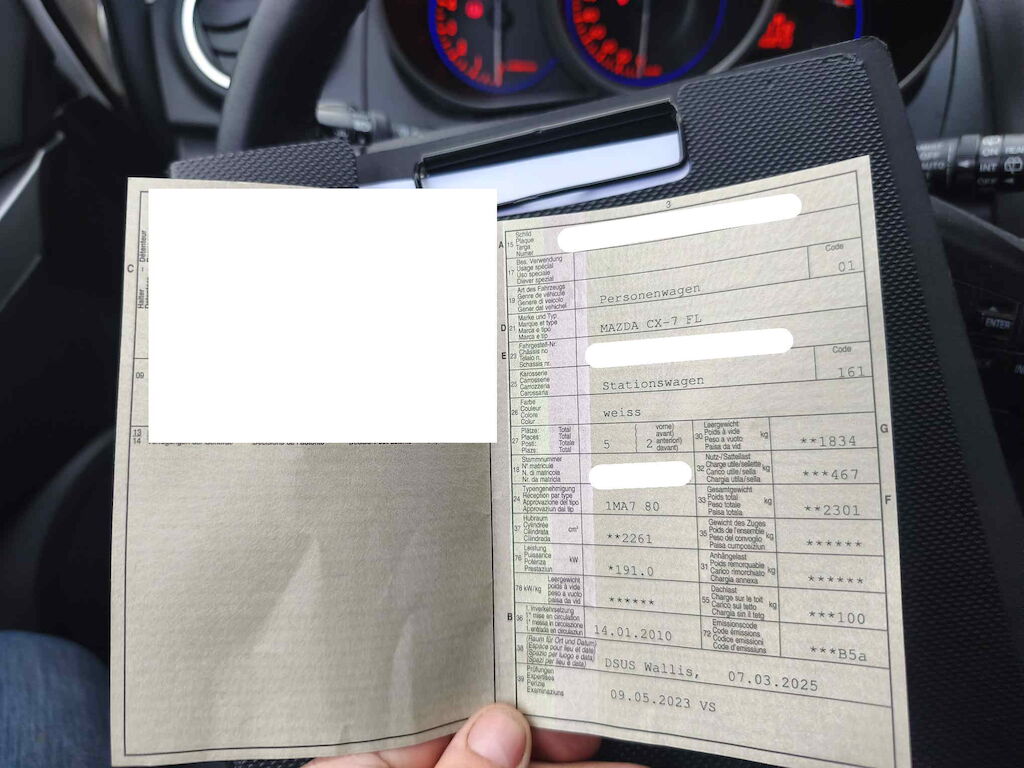 3
C
Halter – Détenteur
09
13
14
A
15
Schild
Plaque
Targa
Numer
17
Bes. Verwendung
Usage spécial
Uso speciale
Diever spezial
Code
01
19
Art des Fahrzeugs
Genre de véhicule
Genere di veicolo
Gener dal vehichel
Personenwagen
D
21
Marke und Typ
Marque et type
Marca e tipo
Marca e tip
MAZDA CX-7 FL
E
23
Fahrgestell-Nr.
Châssis no
Telaio n.
Schassis nr.
25
Karosserie
Carrosserie
Carrozzeria
Carossaria
Stationswagen
Code
161
26
Farbe
Couleur
Colore
Colur
weiss
27
Plätze: Total
Places: Total
Posti: Totale
Plazs: Total
5
( vorne)
avant)
2 anteriori)
( davant)
30
Leergewicht
Poids à vide
Peso a vuoto
Paisa da vid
kg
**1834
G
18
Stammnummer
N° matricule
N. di matricola
Nr. da matricla
32
Nutz-/Sattellast
Charge utile/sellette
Carico utile/sella
Chargia utila/sella
kg
***467
24
Typengenehmigung
Réception par type
Approvazione del tipo
Approvaziun dal tip
1MA7 80
33
Gesamtgewicht
Poids total
Peso totale
Paisa totala
kg
**2301
F
37
Hubraum
Cylindrée
Cilindrata
Cilindrada
cm³
**2261
35
Gewicht des Zuges
Poids de l'ensemble
Peso del convoglio
Paisa cumposiziun
kg
******
76
Leistung
Puissance
Potenza
Prestaziun
kW
*191.0
31
Anhängelast
Poids remorquable
Carico rimorchiato
Chargia annexa
kg
******
78 kW/kg
Leergewicht
poids à vide
peso a vuoto
paisa da vid
******
55
Dachlast
Charge sur le toit
Carico sul tetto
Chargia sin il tetg
kg
***100
B
36
1. Inverkehrsetzung
1re mise en circulation
1a messa in circolazione
1. entrada en circulaziun
14.01.2010
72
Emissionscode
Code émissions
Codice emissioni
Code d'emissiuns
***B5a
38
(Raum für Ort und Datum)
(Espace pour lieu et date)
(Spazio per luogo e data)
(Spazi per lieu e data)
DSUS Wallis, 07.03.2025
39
Prüfungen
Expertises
Perizie
Examinaziuns
09.05.2023 VS
AUTO
INT
ENTER